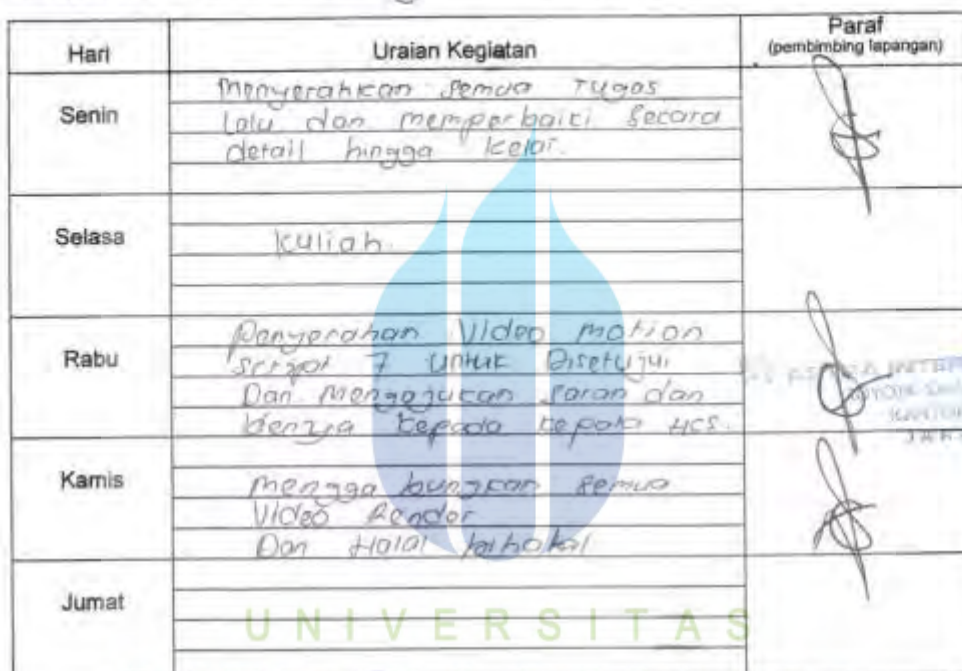 Hari Uraian Kegiatan Paraf
(pembimbing lapangan)
Senin
Menyerahkan semua Tugas
Lalu dan memperbaiki secara
detail hingga kelar.
Selasa
Kuliah.
Rabu
Penyerahan Video motion
7 untuk Disetujui
Dan Mengajukan saran dan
kepada kepala HCS.
Kamis
menggabungkan semua
Video Render
Dan Halal
Jumat
UNIVERSITAS